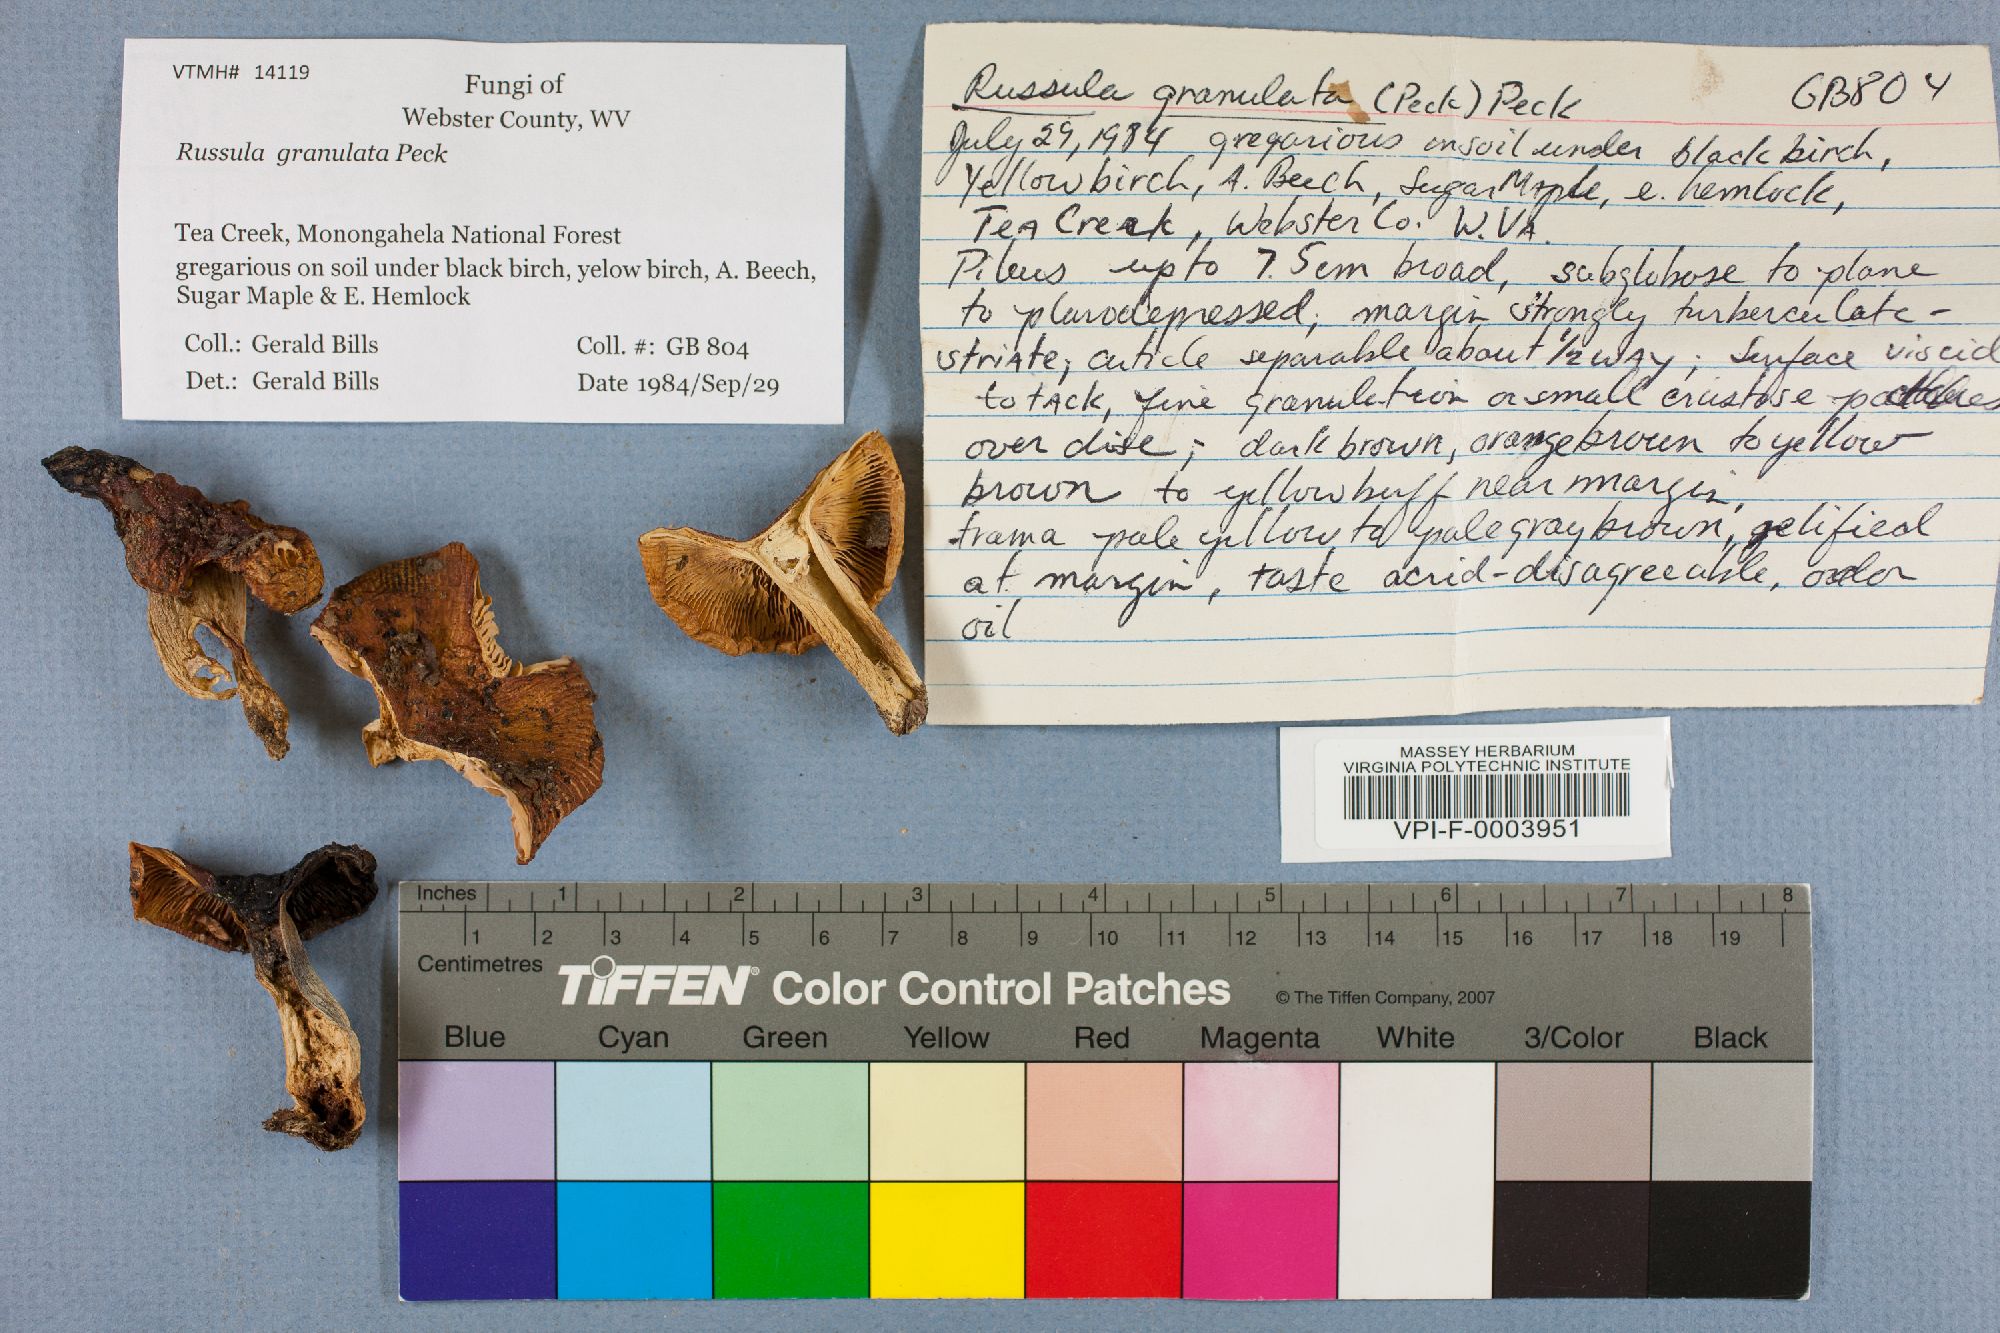 VTMH# 14119
Fungi of
Webster County, WV
Russula granulata Peck
Tea Creek, Monongahela National Forest
gregarious on soil under black birch, yelow birch, A. Beech,
Sugar Maple & E. Hemlock
Coll.: Gerald Bills
Coll. #: GB 804
Det.: Gerald Bills
Date 1984/Sep/29
Russula granulata (Peck) Peck GB804
July 29, 1984 gregarious on soil under black birch,
Yellow birch, A. Beech, Sugar Maple, e. hemlock,
Tea Creek, Webster Co. W.VA.
Pileus up to 7.5cm broad, subglobose to plane
to planodepressed, margin strongly turberculate-
striate; cuticle separable about 1/2 way; Surface viscid
to tack, fine granulation or small crustose patches
over disc; dark brown, orange brown to yellow
brown to yellow buff near margin,
trama pale yellow to pale gray brown, gelified
at margin, taste acrid-disagreeable, odor
oil
MASSEY HERBARIUM
VIRGINIA POLYTECHNIC INSTITUTE
VPI-F-0003951
Inches 1 2 3 4 5 6 7 8
1 2 3 4 5 6 7 8 9 10 11 12 13 14 15 16 17 18 19
Centimetres
TIFFEN® Color Control Patches © The Tiffen Company, 2007
Blue Cyan Green Yellow Red Magenta White 3/Color Black